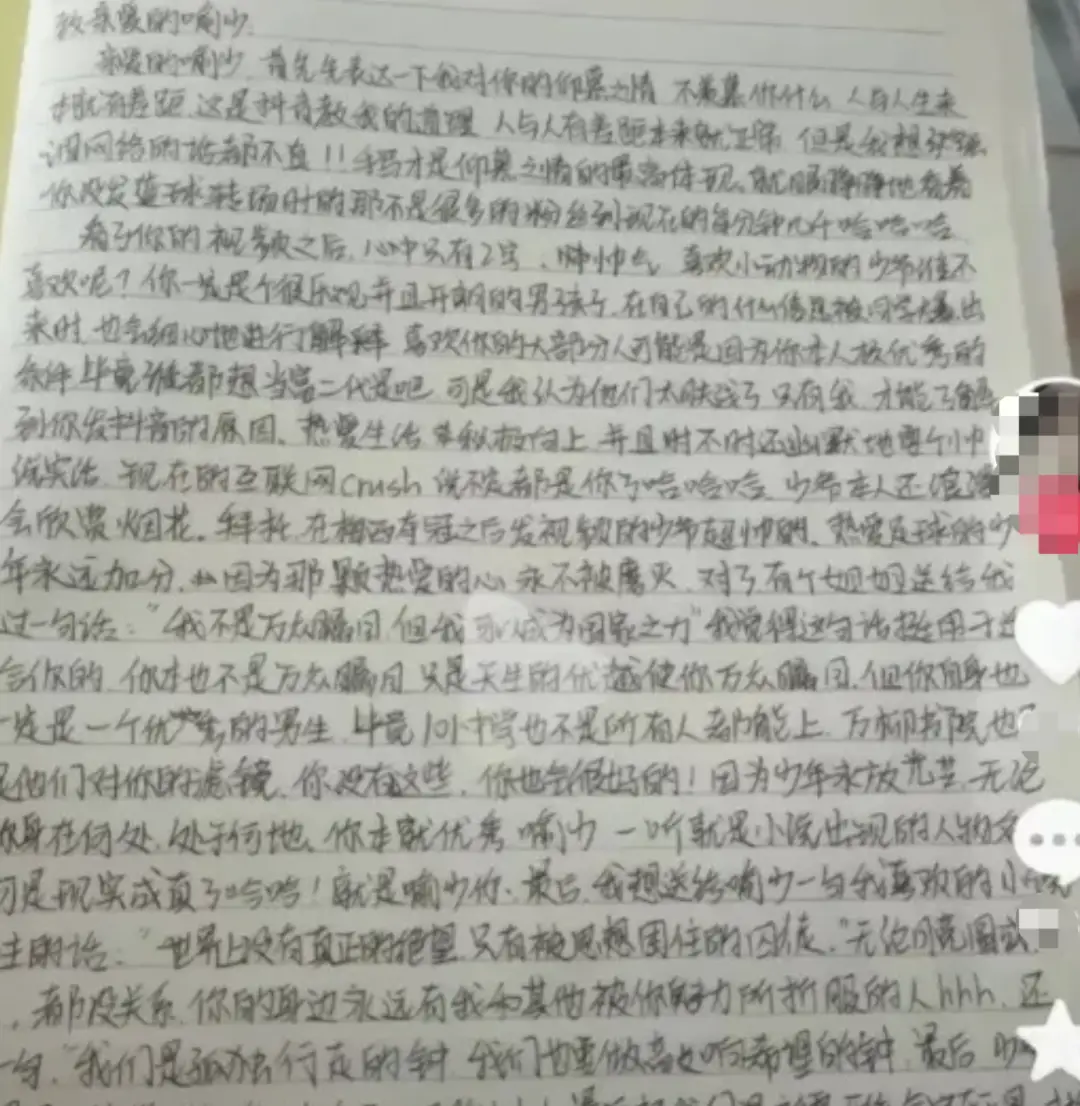 致亲爱的喻少
亲爱的喻少,首先先表达一下我对你的仰慕之情 不羡慕你什么 人与人生来
就有差距 这是抖音教我的道理 人与人有差距本来就正常 但是我想
说网络的话都不真!!手写才是仰慕之情的最高体现、就静静地看着
你没发篮球转场时的那不是很多的粉丝到现在的每分钟几千哈哈哈
看了你的视频之后,心中只有2字、帅帅 喜欢小动物的少年谁不
喜欢呢?你一定是个很乐观并且开朗的男孩子,在自己的什么信息被同学爆出
来时 也会细心地进行了解释 喜欢你的大部分人可能是因为你本人极优秀的
条件 毕竟谁都想当富二代是吧 可是我认为他们太肤浅了 只有我 才能了解
到你发抖音的原因、热爱生活 积极向上 并且时不时还幽默地
诚实话 现在的互联网crush 说不定都是你了哈哈哈 少爷本人还浪漫
会欣赏烟花。拜托,在梅西夺冠之后发视频的少爷超帅的、热爱足球的少
年永远加分,因为那颗热爱的心 永不被磨灭、对了有个姐姐送给我
过一句话:"我不是万众瞩目,但我可以成为国家之力"我觉得这句话挺适用于
你的 你本也不是万众瞩目 只是天生的优越使你万众瞩目,但你自身也
一定是一个优秀的男生 毕竟101中学也不是所有人都能上,万柳书院也
是他们对你的滤镜、你没有这些、你也会很好的!因为少年永放光芒、无论
你身在何处,处于何地、你本就优秀 喻少 一听就是小说出现的人物
可是现实成真了哈哈!就是喻少你、最后、我想送给喻少一句我喜欢的小说
的话:"世界上没有真正的绝望,只有被思想困住的囚徒、"无论
,都没关系、你的身边永远有我和其他被你魅力所折服的人hhh、还
一句,"我们是孤独行走的钟,我们也要做高处响希望的钟、最后